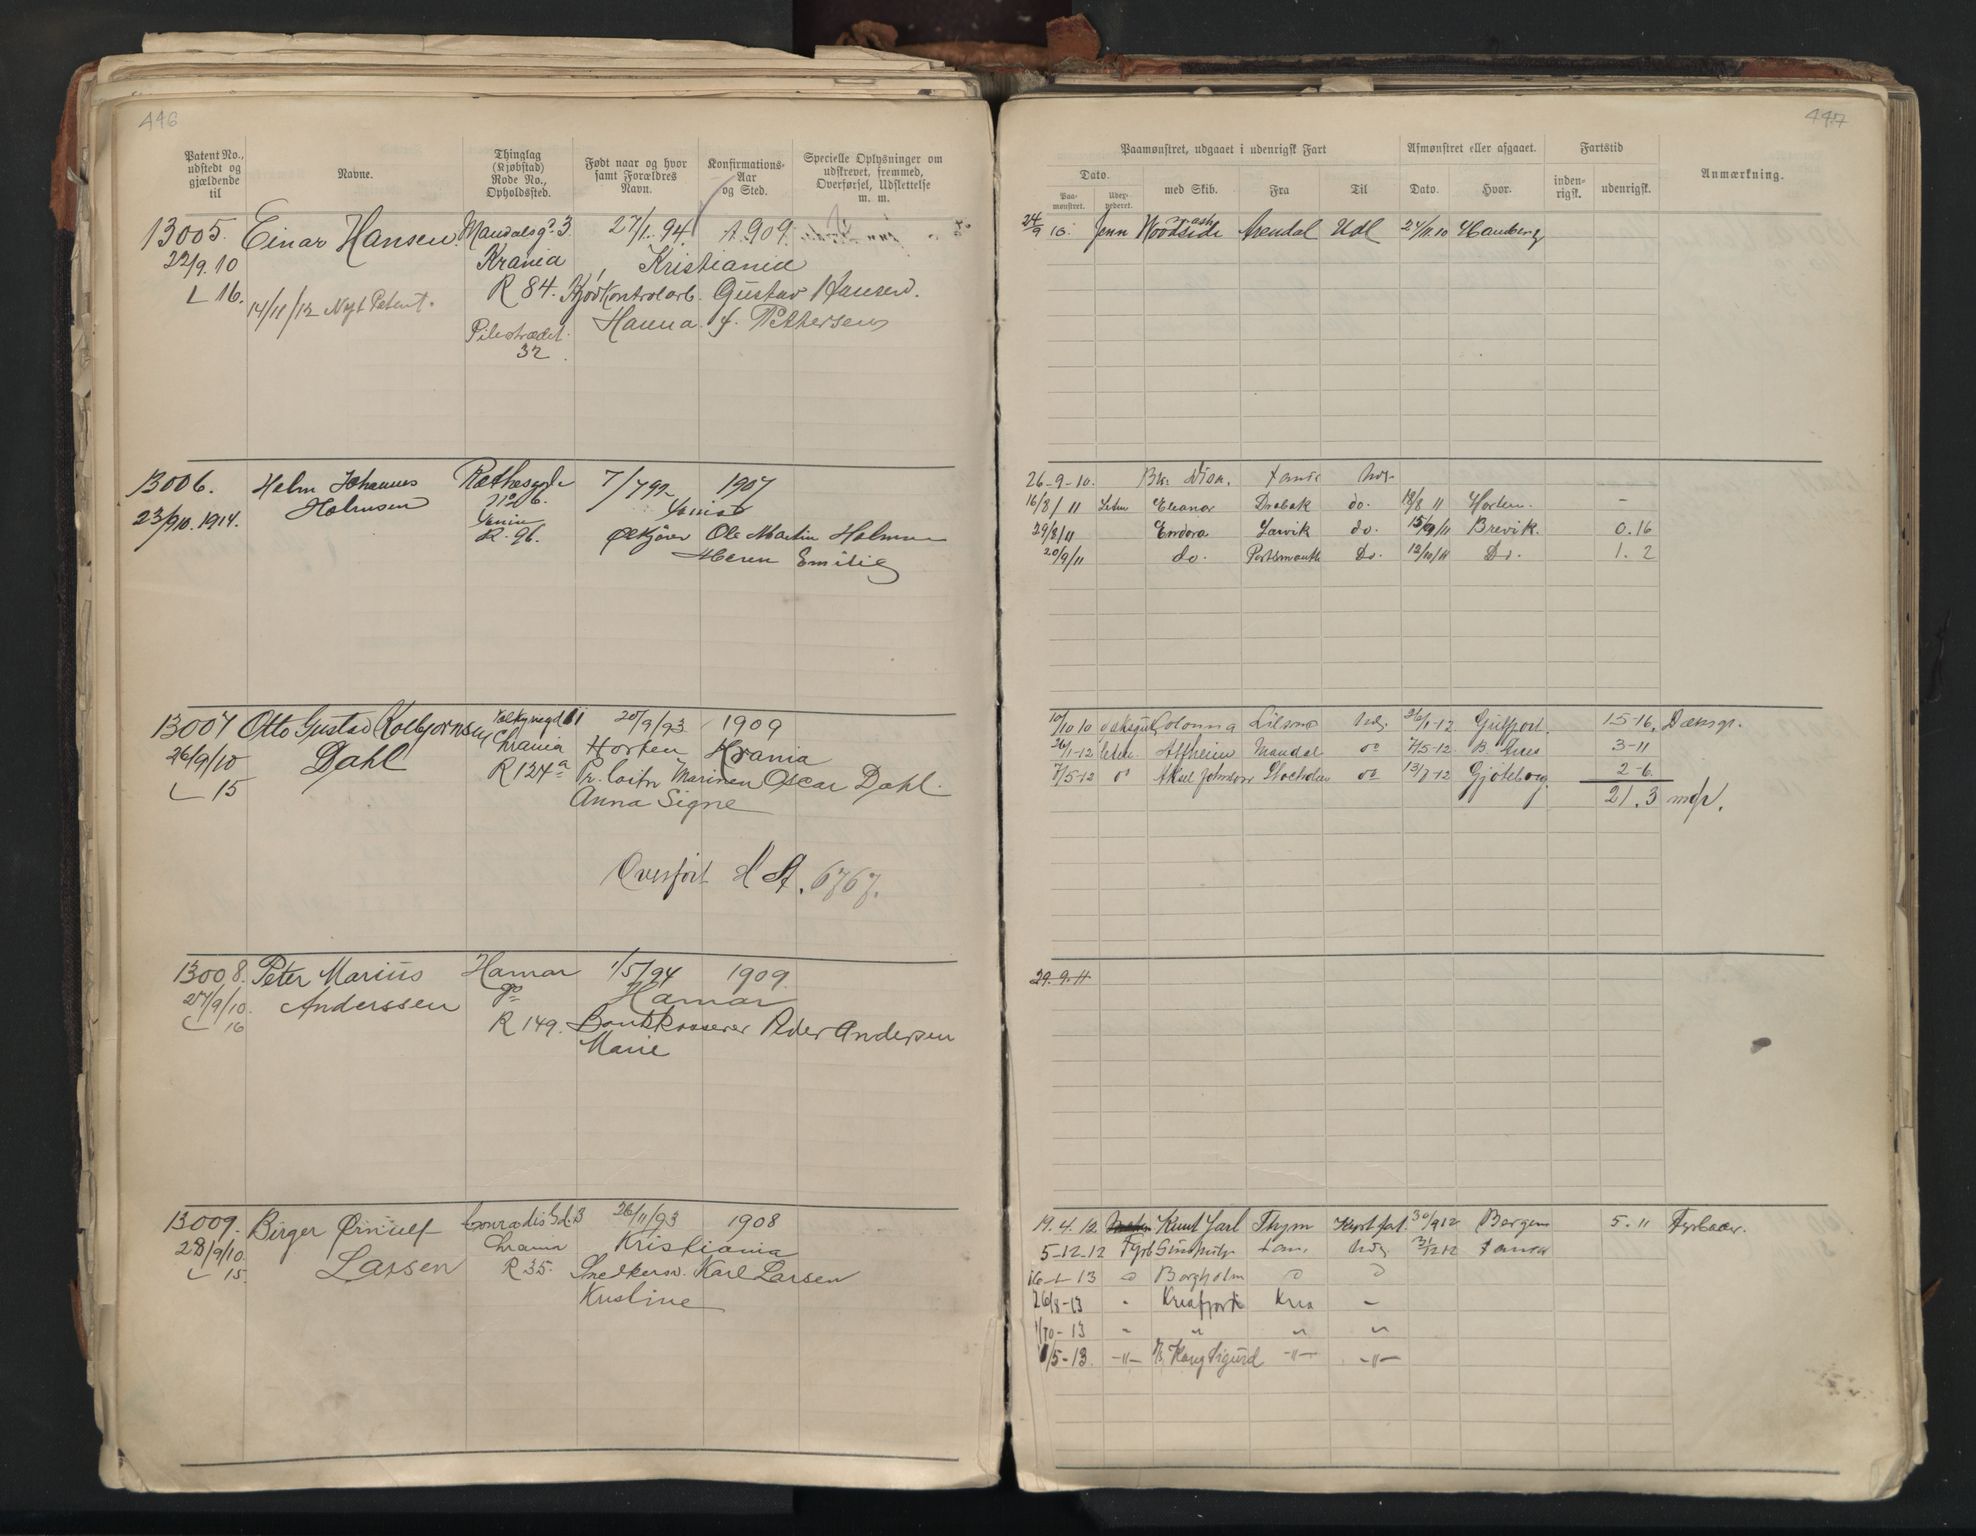 446
Patent No., udstedt og gjældende til
Navne.
Thinglag (Kjøbstad) Rode No., Opholdssted.
Født naar og hvor samt Forældres Navn.
Konfirmations- Aar og Sted.
Specielle Oplysninger om udskrevet, fremmed, Overførsel, Udslettelse m. m.
13005. Einar Hansen Mandalsg. 3. 27/1. 94. 1909.
22/9. 10 Krania Kristiania
L 16. 14/11/12 Nyt Patent. R 84. Kjødkontrolarb. Gustav Hansen.
Hanna f. Pettersen
Pilestrædet 32.
13006. Holm Johannes Rathesgd. 7/7 92 1907
23/9 10. 1914. Holmsen
R. 96. Ølkjører Ole Martin Holmsen
Emilie
13007 Otto Gustav Kolbjørnsen 20/9/93 1909
26/9/10 Dahl Chrania Horten Krania
L 15 R 124a Pr. løitn Marinen Oscar Dahl.
Anna Signe
Overført H St. 6767.
13008. Peter Marius Hamar 1/5/94 1909.
27/9/10. Anderssen Hamar
L 16 R 149. Bankkasserer Peder Andersen
Marie
13009. Birger Ørnulf Conradis Gd. 3 26/11/93 1908
28/9/10. Larsen Chrania Kristiania
L 15. R 35. Snedkersv. Karl Larsen
Kristine
447
Paamønstret, udgaaet i udenrigsk Fart
Afmønstret eller afgaaet.
Fartstid
Anmærkning.
Dato.
Paa- mønstret.
med Skib.
Fra
Til
Dato.
Hvor.
inden- rigsk.
udenrigsk.
24/9 10. Jenn Woodside Arendal Udl 24/11.10 Hamburg
26-9-10. Bk.
16/8/11 Eleanor Drøbak do. 18/8 11 Horten. -
29/8/11 Endora Larvik do. 15/9/11 Brevik. 0.16
20/9/11 do. Portsmouth Do. 12/10/11 Do. 1. 2
10/10 10 Dæksgut Colonna 26/1-12 Gulfport. 15-16. Dæksgt.
26/1-12 Mandal do 7/5-12 B. Aires 3-11
7/5-12 Aksel Johnson Stocholm do 13/7-12 Gjøteborg. 2-6.
21.3
29.9.11
19.4.12. Knut Jarl Thjm Kyst fart 30/9 12 Bergen 5. 11 Fyrbøder.
5-12-12 Fyrb 31/12 12
16-1-13 Borgholm
26/8-13 - Kriafjord Kria -
1/10-13 - " " "
1/5-13. -"- Kong Sigurd -"- -"-